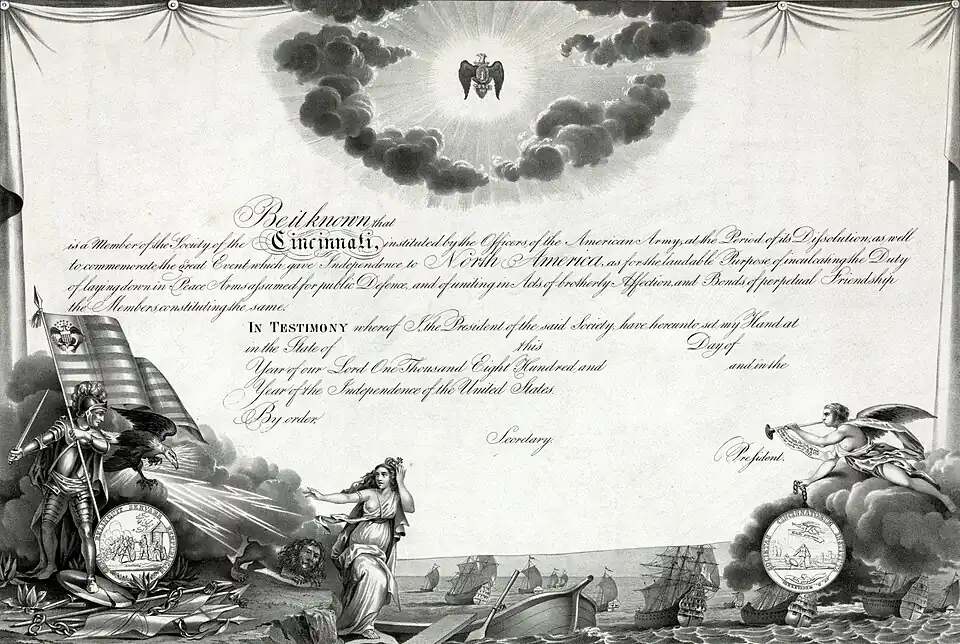 Be it known that
is a Member of the Society of the Cincinnati, instituted by the Officers of the American Army, at the Period of its Dissolution, as well
to commemorate the great Event which gave Independence to North America, as for the laudable Purpose of inculcating the Duty
of laying down in Peace Arms assumed for public Defence, and of uniting in Acts of brotherly Affection, and Bonds of perpetual Friendship
the Members constituting the same.
IN TESTIMONY whereof I, the President of the said Society, have hereunto set my Hand at
in the State of this Day of
Year of our Lord One Thousand Eight Hundred and and in the
Year of the Independence of the United States.
By order,
Secretary.
President.